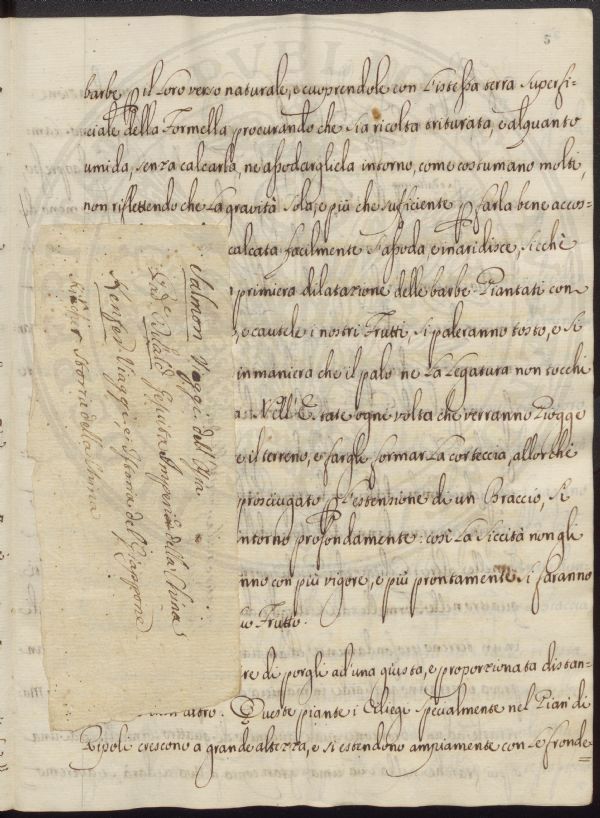 5
barbe p il loro verso naturale, e cuoprendole con l'istessa terra superfi=
ciale della Formella procurando che sia ricolta triturata, e alquanto
umida, senza calcarla, ne assodargliela intorno, come costumano molti,
non riflettendo che la gravità sola, e più che sufficiente p farla bene accos=
calcata facilmente s'assoda, e inaridisce, sicchè
primiera dilatazione delle barbe. Piantati con
, e cautele i nostri Frutti, si paleranno tosto, e si
in maniera che il palo ne la legatura non tocchi
Nell'E. tate ogne volta che verranno Piogge
e il terreno, e fargle formar la corteccia, allorchè
prosciugato p l'estensione di un Braccio, si
intorno profondamente: così la siccità non gli
nno con più vigore, e più prontamente si faranno
Frutto.
re di porgli ad'una giusta, e proporzionata distan=
altro. Queste piante i Ciliegi specialmente nel Pian di
Ripoli crescono a grande altezza, e si estendono ampiamente con le fronde=
Salmon Viaggi dell'Asia
Du Halde Imperio della China
Kenfer Viaggi, ei Istoria del Giappone
Kircher Storia della China